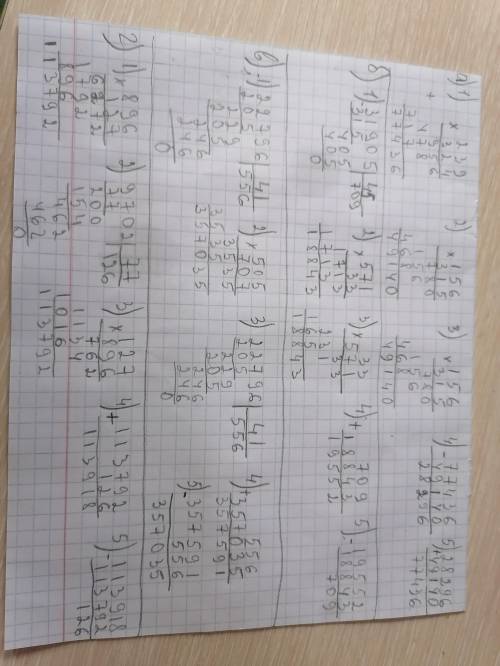 а) 1) × 239
324
+ 956
478
717
77436
2) × 156
315
780
156
468
49140
3) × 156
315
780
156
468
49140
4) - 77436
49140
28296
5) + 28296
49140
77436
б) 1) 31905 | 45
315 | 709
405
405
0
2) × 571
33
1713
1713
18843
3) × 33
571
33
231
165
18843
4) + 709
18843
19552
5) - 19552
18843
709
в) 1) 22796 | 41
205 | 556
229
205
246
246
0
2) × 505
707
3535
3535
357035
3) 22796 | 41
205 | 556
229
205
246
246
0
4) + 556
357035
357591
5) - 357591
556
357035
2) 1) × 896
127
6272
1792
896
113792
2) 9702 | 77
77 | 126
200
154
462
462
0
3) × 127
896
762
1134
1016
113792
4) + 113792
126
113918
5) - 113918
113792
126